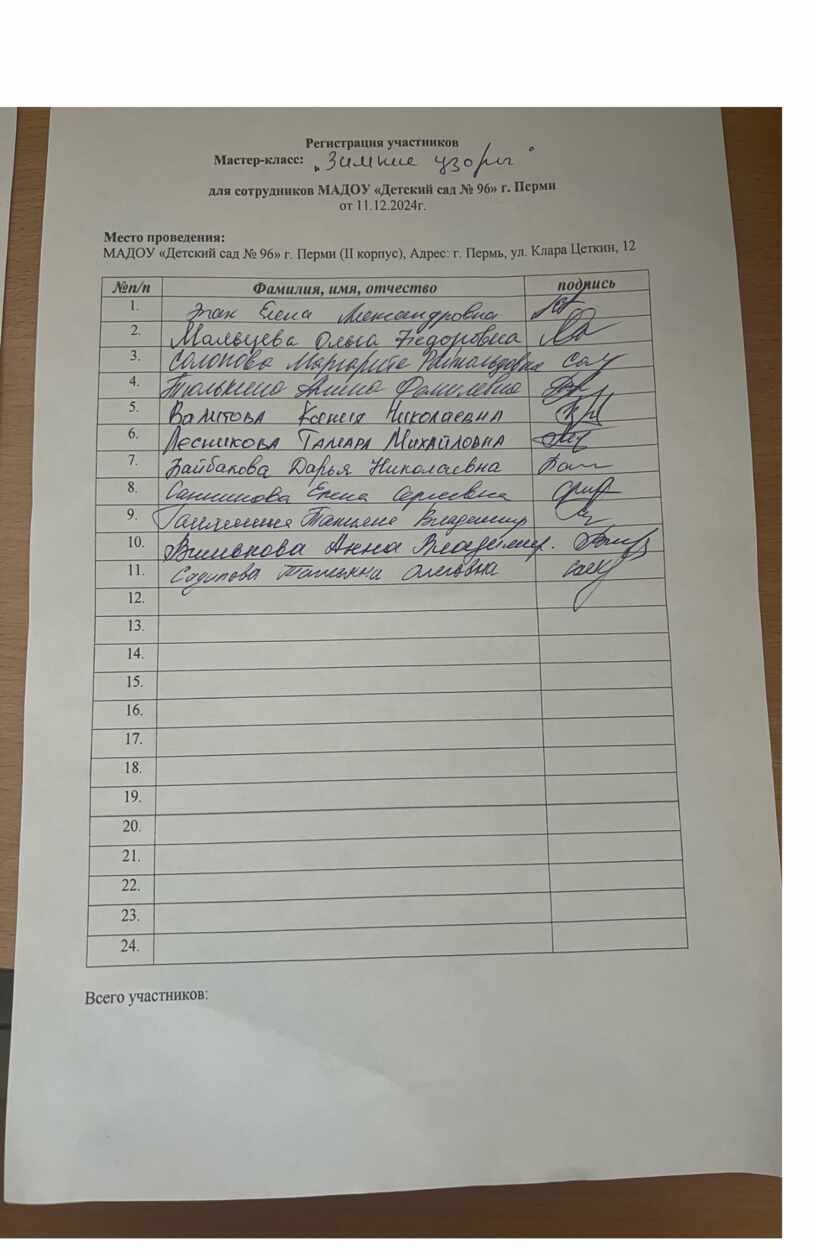 Регистрация участников
Мастер-класс: „Зимние узоры"
для сотрудников МАДОУ «Детский сад № 96» г. Перми
от 11.12.2024г.
Место проведения:
МАДОУ «Детский сад № 96» г. Перми (II корпус), Адрес: г. Пермь, ул. Клара Цеткин, 12
№п/п Фамилия, имя, отчество подпись
1. Елена Александровна
2. Мальцева Ольга Федоровна
3. Солопова Маргарита
4. Тюлькина
5. Валитова Ксения Николаевна
6. Лесникова Тамара Михайловна
7. Байбакова Дарья Николаевна
8. Санникова Елена Сергеевна
9. Татьяна Владимир
10. Анна Владимир.
11. Татьяна Олеговна
12.
13.
14.
15.
16.
17.
18.
19.
20.
21.
22.
23.
24.
Всего участников: